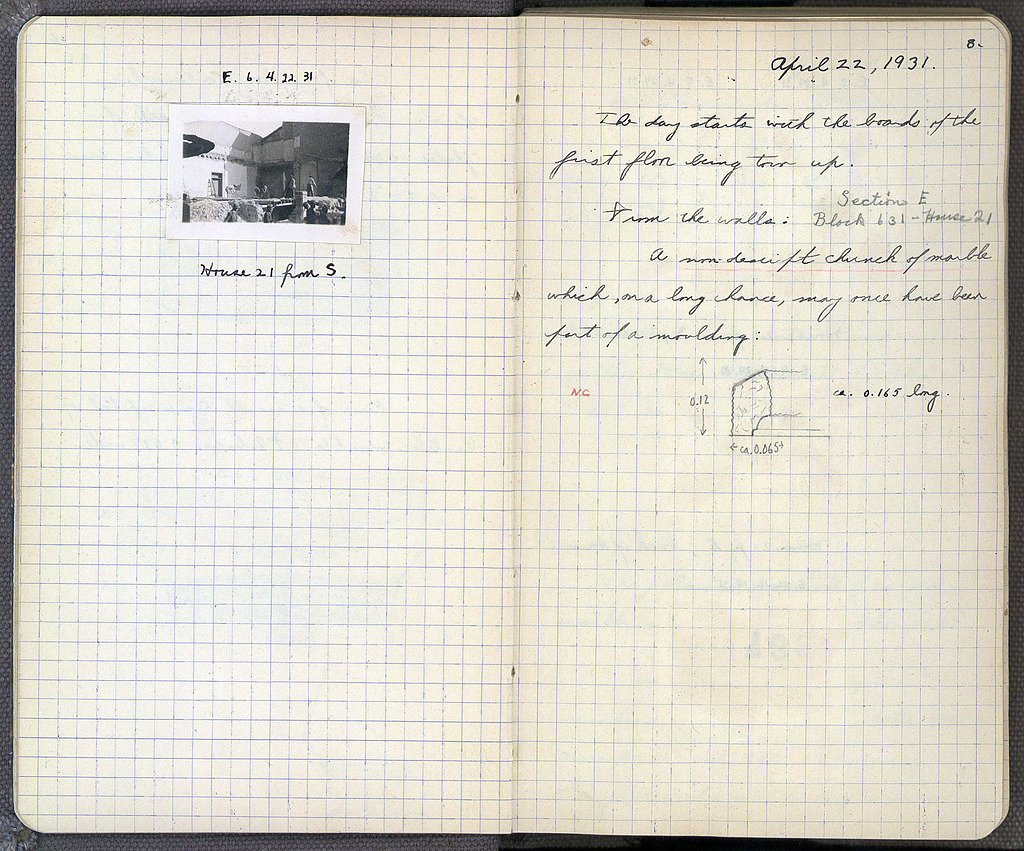 E. 6. 4. 22. 31
House 21 from S.
8.
April 22, 1931.
The day starts with the boards of the
first floor being torn up.
From the walls:
Section E
Block 631 - House 21
A non-descript chunck of marble
which, on a long chance, may once have been
part of a moulding:
NC
0.12
ca. 0.165 long.
ca. 0.065